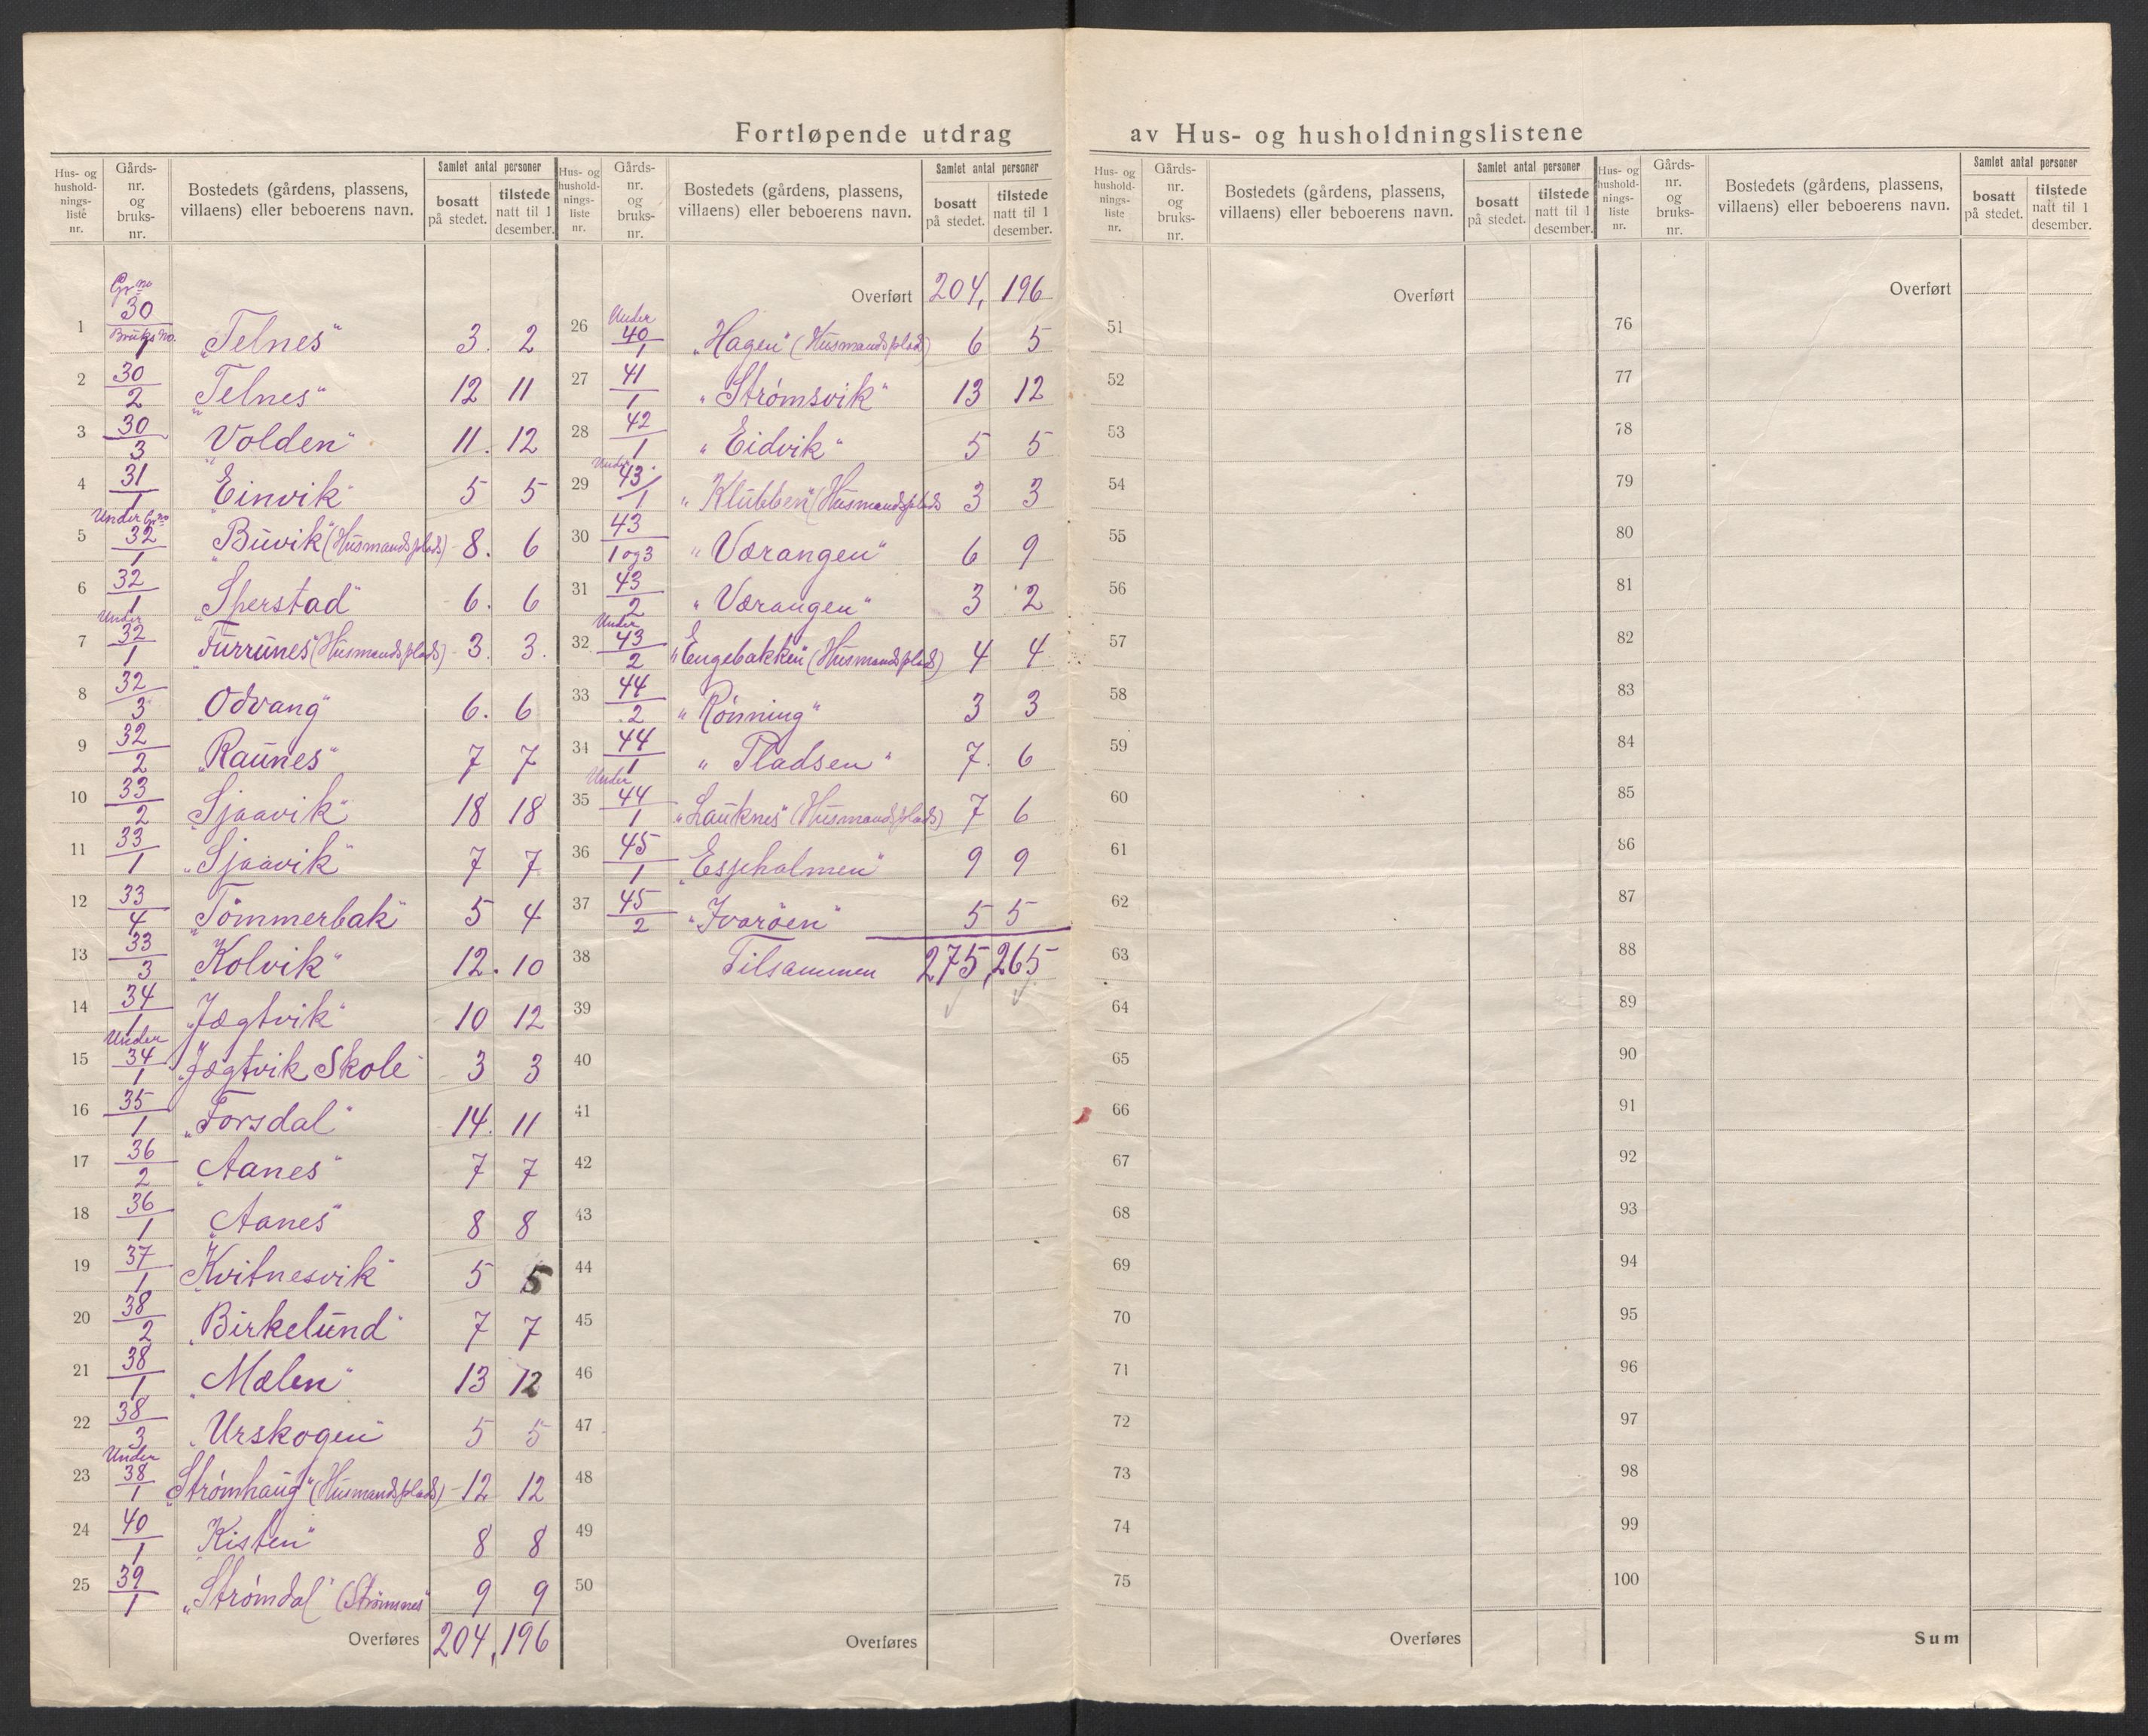 Fortløpende utdrag av Hus- og husholdningslistene
Hus- og husholdnings-liste nr. | Gårds-nr. og bruks-nr. | Bostedets (gårdens, plassens, villaens) eller beboerens navn. | Samlet antal personer | bosatt på stedet. | tilstede natt til 1 desember.
1 Gr no 30 / Bruks No. 1 „Telnes“ 3. 2
2 30/2 „Telnes“ 12 11
3 30/3 „Volden“ 11. 12
4 31/1 „Einvik“ 5 5
5 Under Gr no 32/1 „Buvik“ (Husmandsplads) 8. 6
6 32/1 „Sperstad“ 6. 6
7 Under 32/1 „Furrunes“ (Husmandsplads) 3. 3.
8 32/3 „Odvang“ 6. 6
9 32/2 „Raunes“ 7 7
10 33/2 „Sjaavik“ 18 18
11 33/1 „Sjaavik“ 7 7
12 33/4 „Tömmerbak“ 5 4
13 33/3 „Kolvik“ 12. 10
14 34/1 „Jægtvik“ 10 12
15 Under 34/1 „Jægtvik Skole“ 3 3
16 35/1 „Forsdal“ 14. 11
17 36/2 „Aanes“ 7 7
18 36/1 „Aanes“ 8 8
19 37/1 „Kvitnesvik“ 5 5
20 38/2 „Birkelund“ 7 7
21 38/1 „Mælen“ 13 12
22 38/3 „Urskogen“ 5 5
23 Under 38/1 „Strømhaug“ (Husmandsplads) 12 12
24 40/1 „Kisten“ 8 8
25 39/1 „Strømdal“ (Strømsnes“ 9 9
Overføres 204, 196
Hus- og husholdnings-liste nr. | Gårds-nr. og bruks-nr. | Bostedets (gårdens, plassens, villaens) eller beboerens navn. | Samlet antal personer | bosatt på stedet. | tilstede natt til 1 desember.
Overført 204, 196
26 Under 40/1 „Hagen“ (Husmandsplad) 6 5
27 41/1 „Strømsvik“ 13 12
28 42/1 „Eidvik“ 5 5
29 Under 43/1 „Klubben“ (Husmandsplads 3 3
30 43/1 og 3 „Værangen“ 6 9
31 43/2 „Værangen“ 3 2
32 Under 43/2 „Engebakken“ (Husmandsplads) 4 4
33 44/2 „Rönning“ 3 3
34 44/1 „Pladsen“ 7. 6
35 Under 44/1 „Lauknes“ (Husmandsplads) 7 6
36 45/1 „Espeholmen“ 9 9
37 45/2 „Ivaröen“ 5 5
38 Tilsammen 275, 265
39
40
41
42
43
44
45
46
47
48
49
50
Overføres
Hus- og husholdnings-liste nr. | Gårds-nr. og bruks-nr. | Bostedets (gårdens, plassens, villaens) eller beboerens navn. | Samlet antal personer | bosatt på stedet. | tilstede natt til 1 desember.
Overført
51
52
53
54
55
56
57
58
59
60
61
62
63
64
65
66
67
68
69
70
71
72
73
74
75
Overføres
Hus- og husholdnings-liste nr. | Gårds-nr. og bruks-nr. | Bostedets (gårdens, plassens, villaens) eller beboerens navn. | Samlet antal personer | bosatt på stedet. | tilstede natt til 1 desember.
Overført
76
77
78
79
80
81
82
83
84
85
86
87
88
89
90
91
92
93
94
95
96
97
98
99
100
Sum